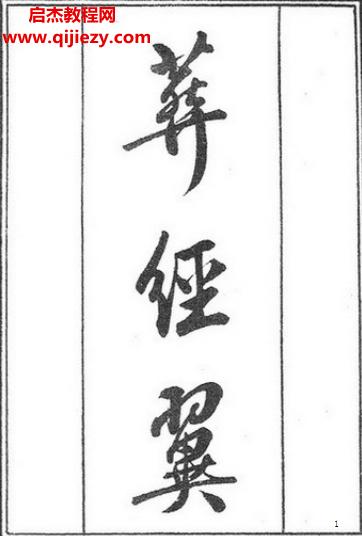 启杰教程网
www.qijiezy.com
葬
經
翼
1